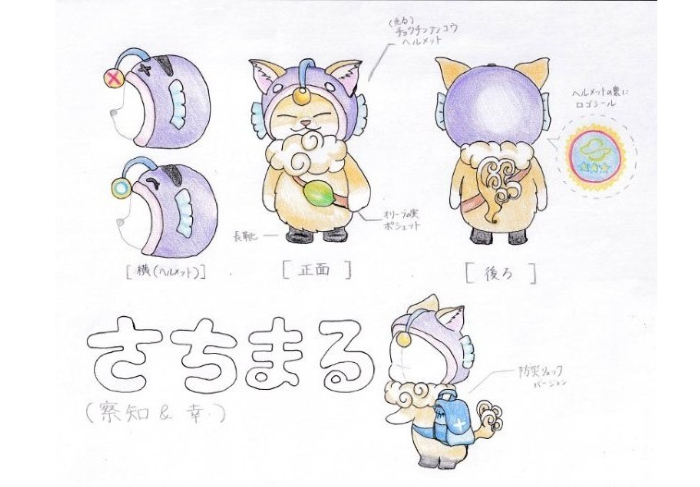 (光る)
チョウチンアンコウ
ヘルメット
ヘルメットの裏に
ロゴシール
長靴
オリーブの実
ポシェット
[横(ヘルメット)]
[正面]
[後ろ]
さちまる
(察知&幸)
防災リュック
バージョン